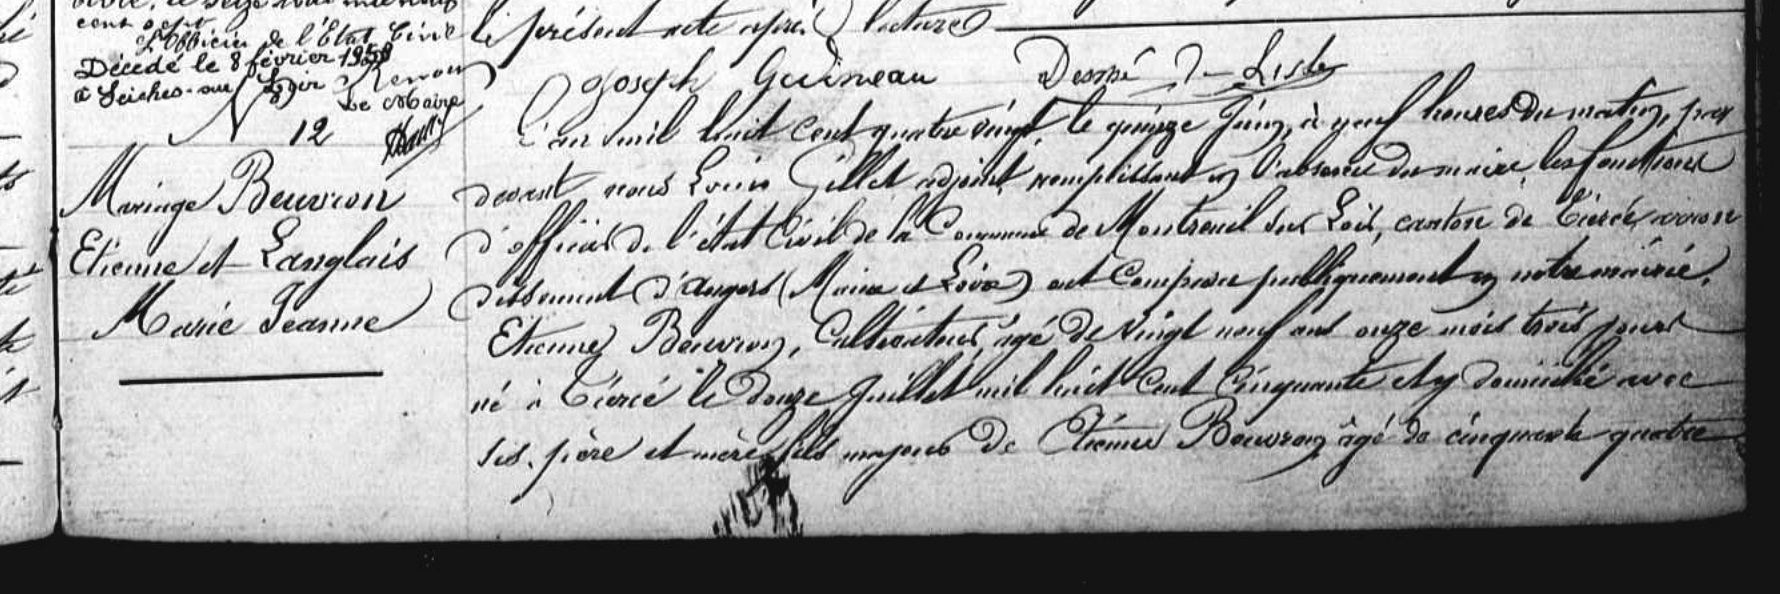 cent sept
L'Officier de l'Etat Civil
Décédé le 8 février 1958
à Seiches-sur-Loir
Le Maire
12
Mariage Beuvron
Etienne et Langlais
Marie Jeanne
le présent acte après lecture
Joseph Guineau Desmé De Lisle
L'an mil huit cent quatre vingt, le quinze Juin, à neuf heures du matin, par
devant nous Louis Gillet adjoint, remplissant en l'absence du maire, les fonctions
d'officier de l'état Civil de la Commune de Montreuil sur Loir, canton de Tiercé, arron
dissement d'Angers (Maine et Loire) ont comparu publiquement en notre mairie.
Etienne Beuvron, Cultivateur, âgé de vingt neuf ans onze mois trois jours
né à Tiercé le douze Juillet mil huit cent cinquante et y domicilié avec
ses père et mère fils majeur de Etienne Beuvron âgé de cinquante quatre